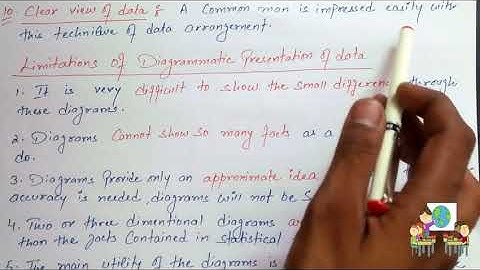 10. Clear view of data :- A Common man is impressed easily with
this technique of data arrangement.
Limitations of Diagrammatic Presentation of data
1. It is very difficult to show the small differenc through
these diagrams.
2. Diagrams Cannot show so many facts as a
do.
3. Diagrams Provide only an approximate idea
accuracy is needed, diagrams will not be
4. Two or three dimentional diagrams
than the facts Contained in statistical
5. The main utility of the diagrams is